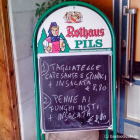 Rothaus
PILS
1) TAGLIATELLE
CAPESANTE E SPINACI
+ INSALATA
€ 8,80
2) PENNE AI
FUNGHI MISTI
+ INSALATA